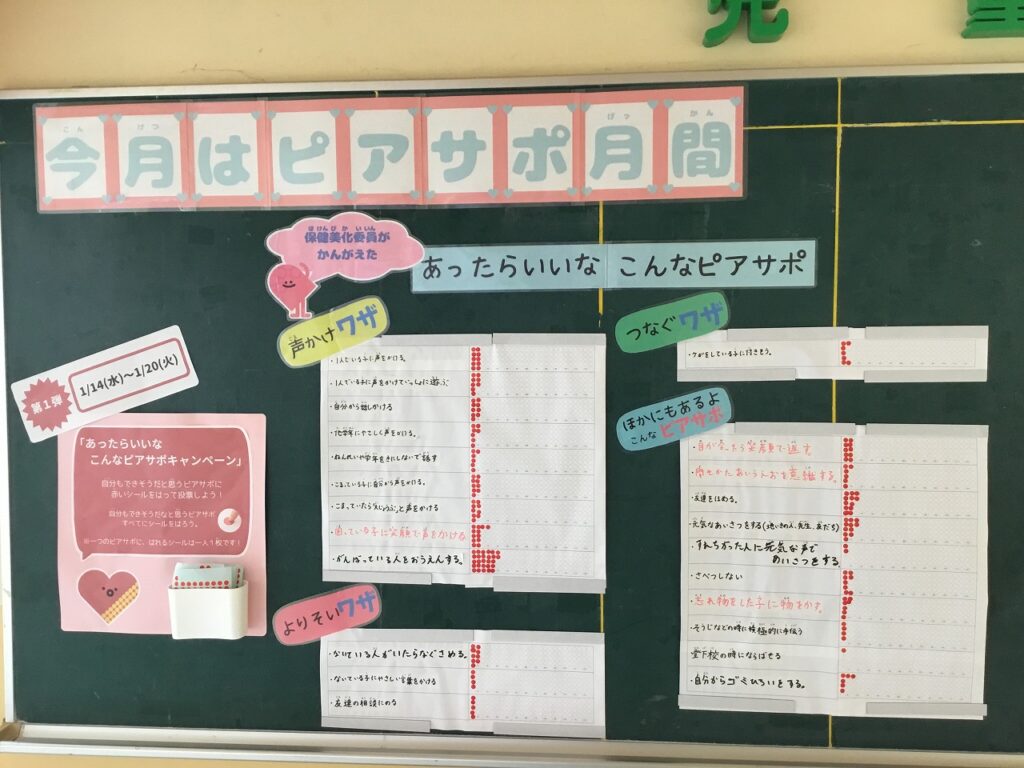 児童
今月はピアサポ月間
保健美化委員が
かんがえた
あったらいいな こんなピアサポ
第1弾
1/14(水)～1/20(火)
「あったらいいな
こんなピアサポキャンペーン」
自分もできそうだと思うピアサポに
赤いシールをはって投票しよう！
自分もできそうだなと思うピアサポ
すべてにシールをはろう。
※一つのピアサポに、はれるシールは一人1枚です！
声かけワザ
・1人でいる子に声をかける。
・1人でいる子に声をかけていっしょに遊ぶ
・自分から話しかける
・他学年にやさしく声をかける。
・ねんれいや学年をきにしないで話す
・こまっている子に自分から声をかける。
・こまっていたら「だいじょうぶ？」と声をかける
・困っている子に笑顔で声をかける
・がんばっている人をおうえんする。
よりそいワザ
・ないている人がいたらなぐさめる。
・ないている子にやさしい言葉をかける
・友達の相談にのる
つなぐワザ
・ケガをしている子に付きそう。
ほかにもあるよ
こんなピアサポ
・目が合ったら笑顔で返す
・あいうえおを意識する。
・友達をほめる。
・元気なあいさつをする(地いきの人、先生、友だち)
・すれちがった人に元気な声で
あいさつをする
・さべつしない
・忘れ物をした子に物をかす。
・そうじなどの時に積極的に手伝う
・登下校の時にならばせる
・自分からゴミひろいをする。